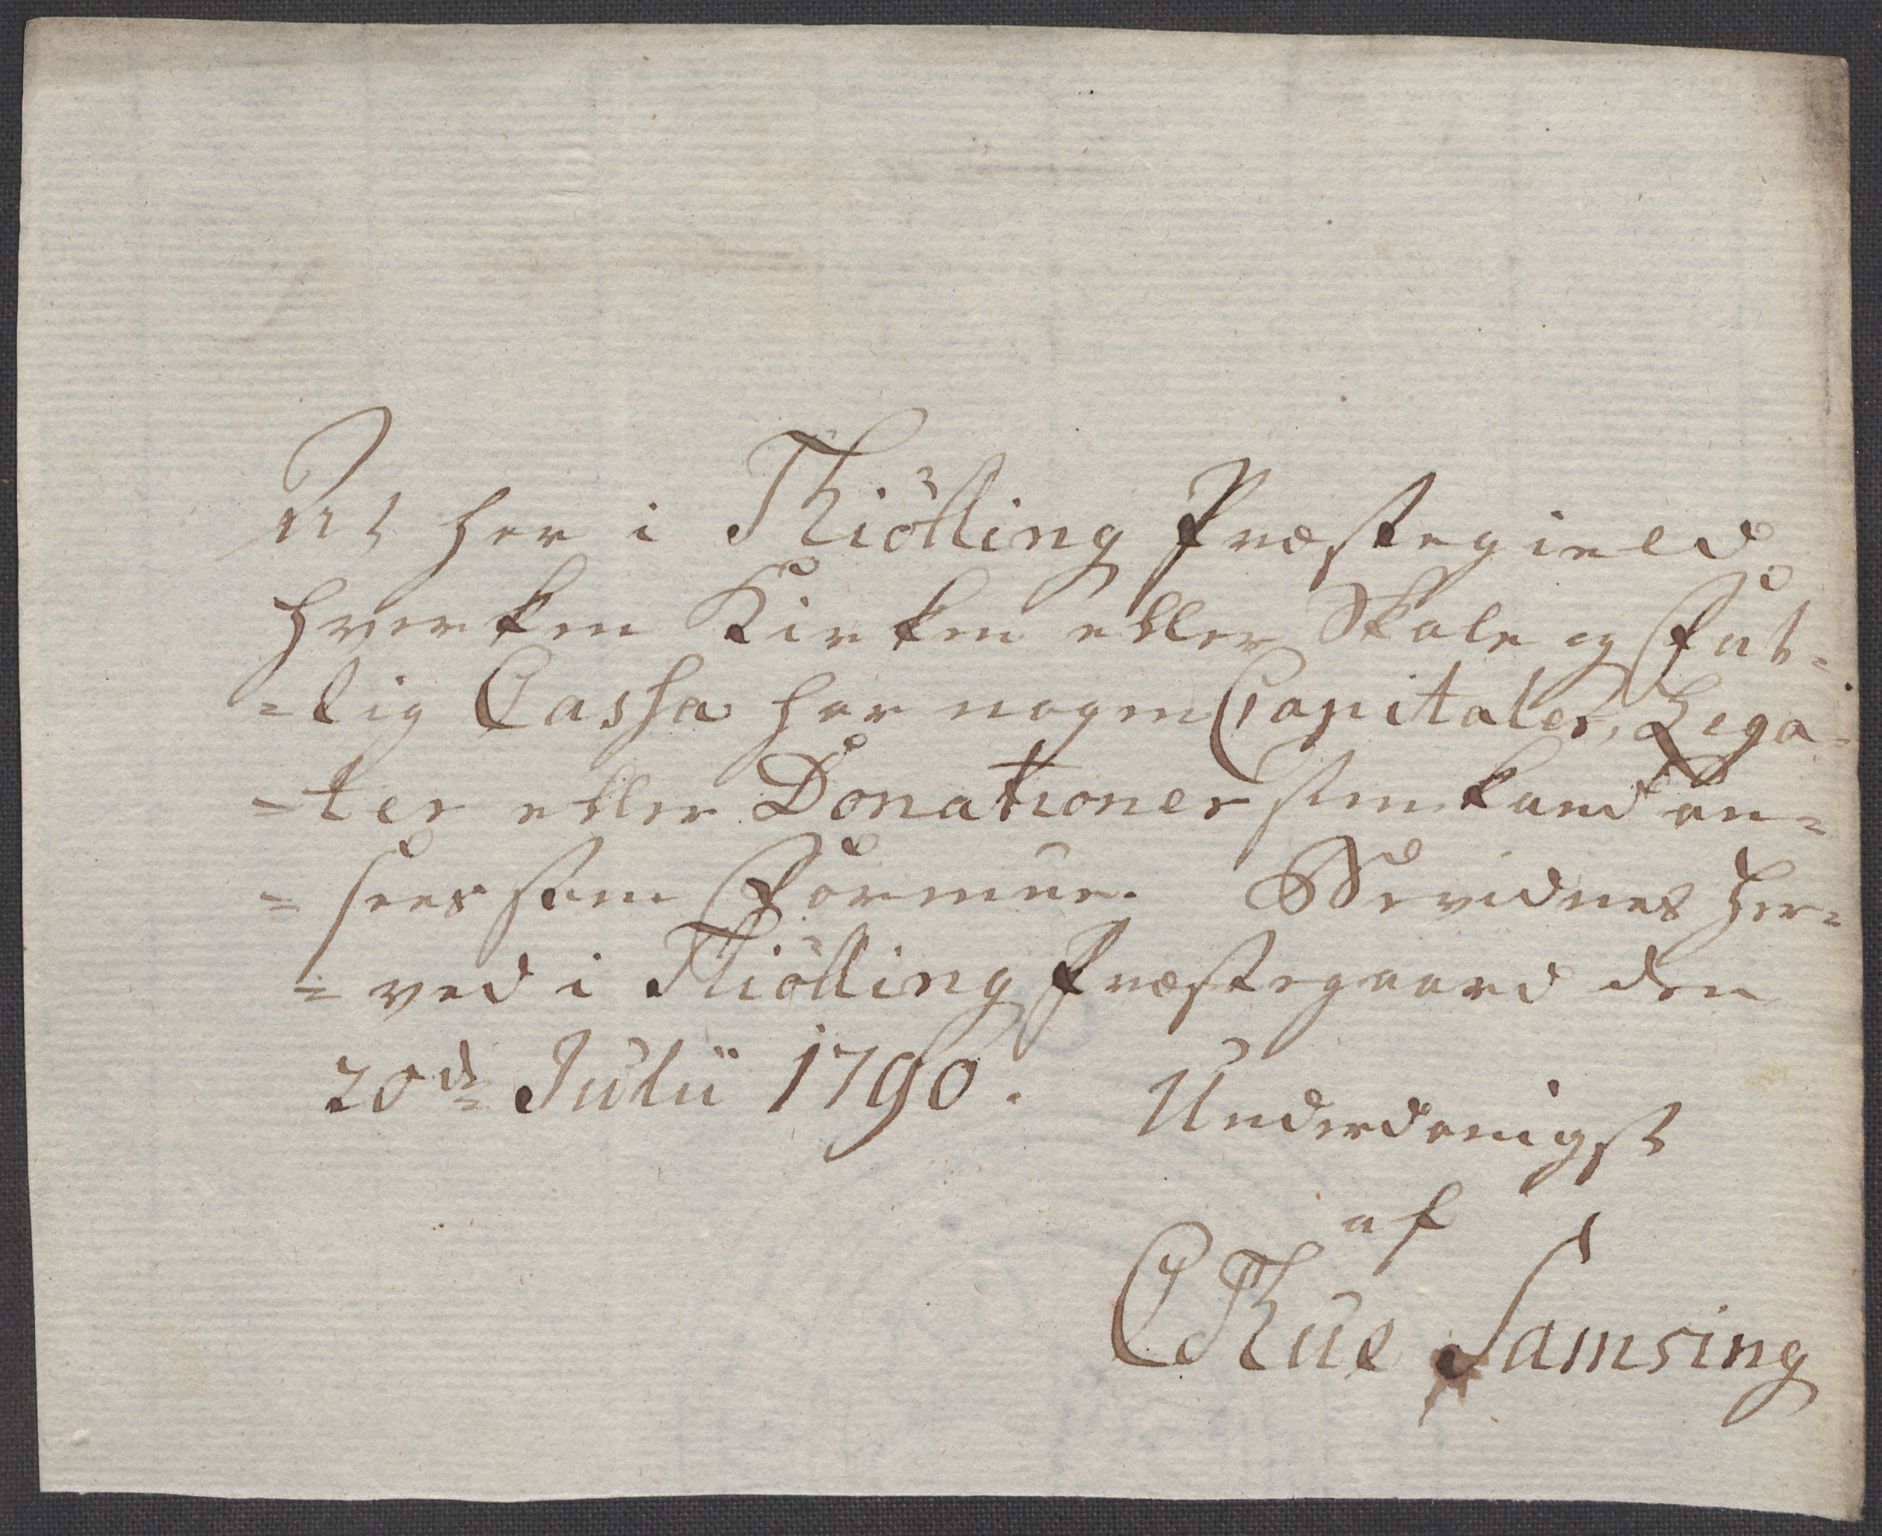 At her i Thiölling Præstegield
hverken Kirken eller Skole og Fat-
-tig Cassa har nogen Capitaler, Lega-
-ter eller Donationer som kand an-
- sees som Formue. Bevidnes her-
- ved i Thiölling Præstegaard den
20de Julii 1790.
Underdanigst
af
CThue Samsing